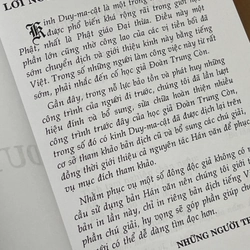 LỜI N
Kinh Duy-ma-cật là một trong
được phổ biến khá rộng rãi trong giới học
Phật, nhất là Phật giáo Đại thừa. Điều này một
phần lớn cũng nhờ công lao của các vị tiền bối đã
sớm chuyển dịch và giới thiệu kinh này bằng tiếng
Việt. Trong số những người làm công việc này từ rất
sớm, phải nhắc đến cố học giả Đoàn Trung Còn.
Gần đây, trong nỗ lực bảo tồn và phát huy những
công trình của người đi trước, chúng tôi đã lần lượt
hiệu đính và bổ sung, sửa chữa hoàn thiện một số
công trình trước đây của học giả Đoàn Trung Còn,
trong số đó có kinh Duy-ma-cật đã được dịch lại trên
cơ sở tham khảo bản dịch cũ và bổ sung các chú giải,
đồng thời giới thiệu cả nguyên tác Hán văn để phục
vụ mục đích tham khảo.
Nhằm phục vụ một số đông độc giả không có
cầu sử dụng bản Hán văn nên chúng tôi
bản in lần này, chỉ in riêng bản dịch tiếng Việ
phần chú giải, hy vọng sẽ góp phần giúp
viết có thể dễ dàng tìm đọc hơn.
NHỮNG NGƯỜI TH